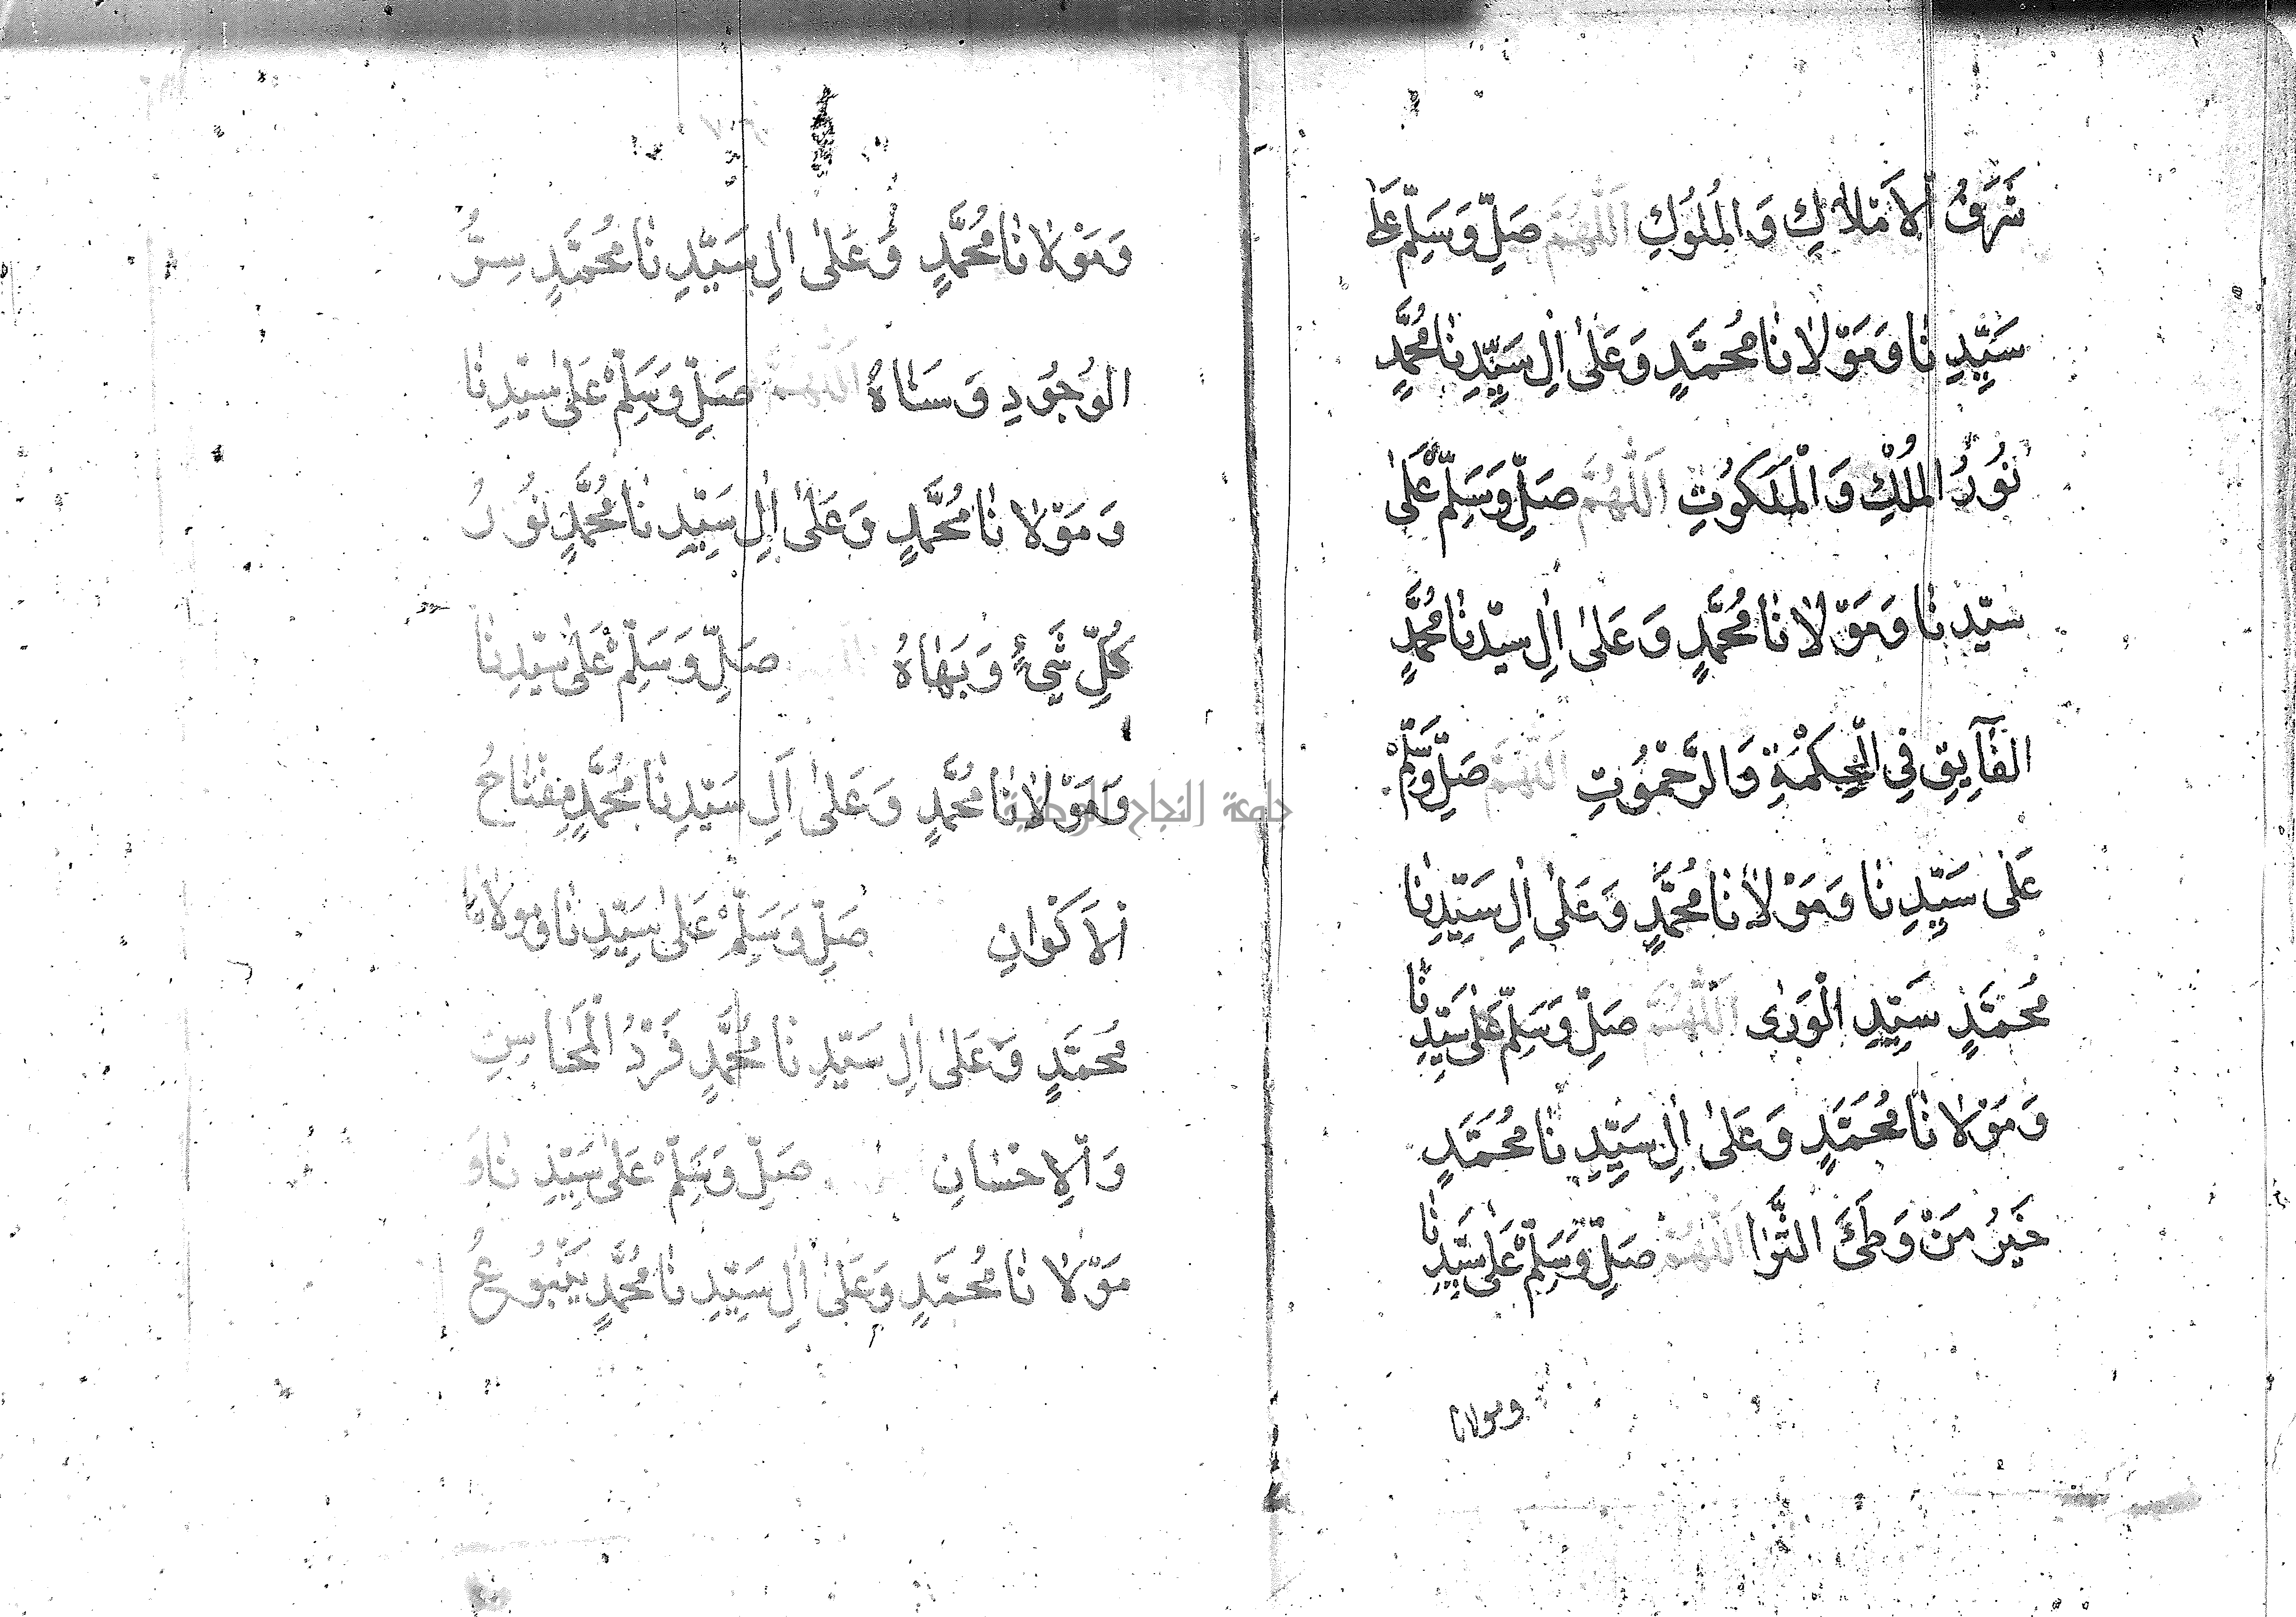 شَرَفُ الْاَمْلَاكِ وَالْمُلُوكِ اَللّٰهُمَّ صَلِّ وَسَلِّمْ عَلٰى
سَيِّدِنَا وَمَوْلَانَا مُحَمَّدٍ وَعَلٰى اٰلِ سَيِّدِنَا مُحَمَّدٍ
نُورُ الْمُلْكِ وَالْمَلَكُوتِ اَللّٰهُمَّ صَلِّ وَسَلِّمْ عَلٰى
سَيِّدِنَا وَمَوْلَانَا مُحَمَّدٍ وَعَلٰى اٰلِ سَيِّدِنَا مُحَمَّدٍ
الْفَآيِقِ فِي الْحِكْمَةِ وَالرَّحَمُوتِ اَللّٰهُمَّ صَلِّ وَسَلِّمْ
عَلٰى سَيِّدِنَا وَمَوْلَانَا مُحَمَّدٍ وَعَلٰى اٰلِ سَيِّدِنَا
مُحَمَّدٍ سَيِّدِ الْوَرٰى اَللّٰهُمَّ صَلِّ وَسَلِّمْ عَلٰى سَيِّدِنَا
وَمَوْلَانَا مُحَمَّدٍ وَعَلٰى اٰلِ سَيِّدِنَا مُحَمَّدٍ
خَيْرُ مَنْ وَطِئَ الثَّرَا اَللّٰهُمَّ صَلِّ وَسَلِّمْ عَلٰى سَيِّدِنَا
ومولانا
وَمَوْلَانَا مُحَمَّدٍ وَعَلٰى اٰلِ سَيِّدِنَا مُحَمَّدٍ سِرُّ
الْوُجُودِ وَسَنَاهُ اَللّٰهُمَّ صَلِّ وَسَلِّمْ عَلٰى سَيِّدِنَا
وَمَوْلَانَا مُحَمَّدٍ وَعَلٰى اٰلِ سَيِّدِنَا مُحَمَّدٍ نُورُ
كُلِّ شَيْءٍ وَبَهَاهُ صَلِّ وَسَلِّمْ عَلٰى سَيِّدِنَا
وَمَوْلَانَا مُحَمَّدٍ وَعَلٰى اٰلِ سَيِّدِنَا مُحَمَّدٍ مِفْتَاحُ
الْاَكْوَانِ صَلِّ وَسَلِّمْ عَلٰى سَيِّدِنَا وَمَوْلَانَا
مُحَمَّدٍ وَعَلٰى اٰلِ سَيِّدِنَا مُحَمَّدٍ فَرْدُ الْمَحَاسِنِ
وَالْاِحْسَانِ صَلِّ وَسَلِّمْ عَلٰى سَيِّدِنَا وَ
مَوْلَانَا مُحَمَّدٍ وَعَلٰى اٰلِ سَيِّدِنَا مُحَمَّدٍ يَنْبُوعُ
جامعة النجاح الوطنية